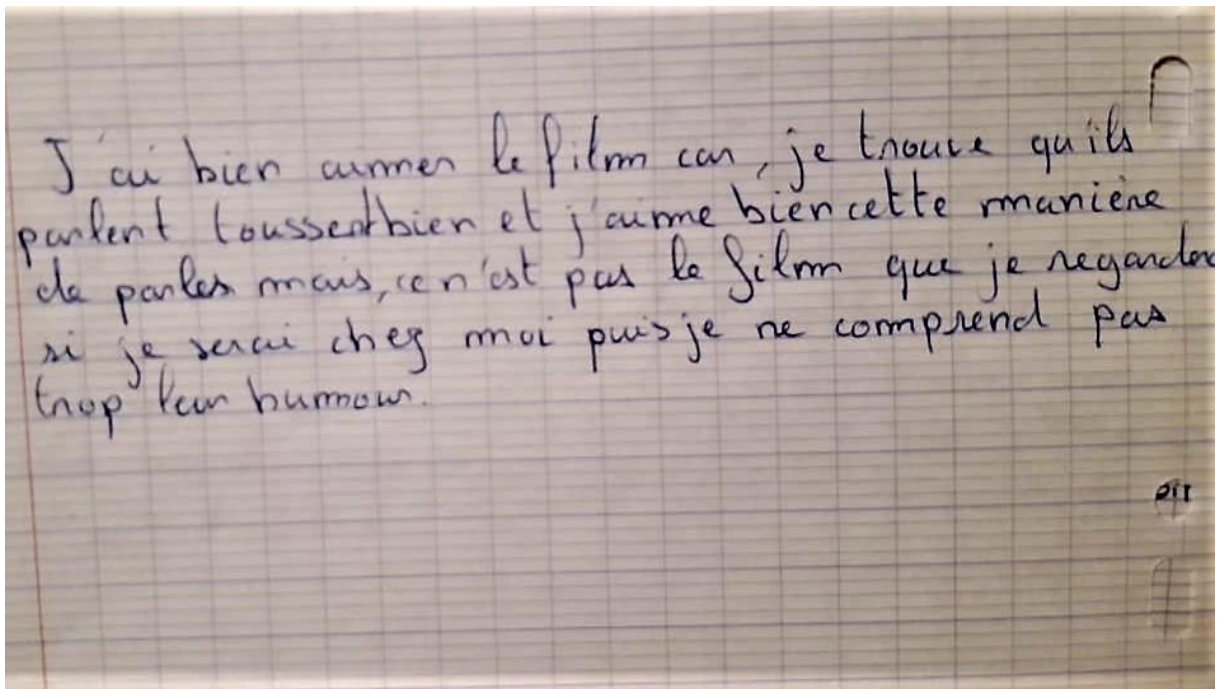 J'ai bien aimer le film car, je trouve qu'ils
parlent toussentbien et j'aime bien cette manière
de parler mais, ce n'est pas le film que je regarder
si je serai chez moi puis je ne comprend pas
trop leur humour.